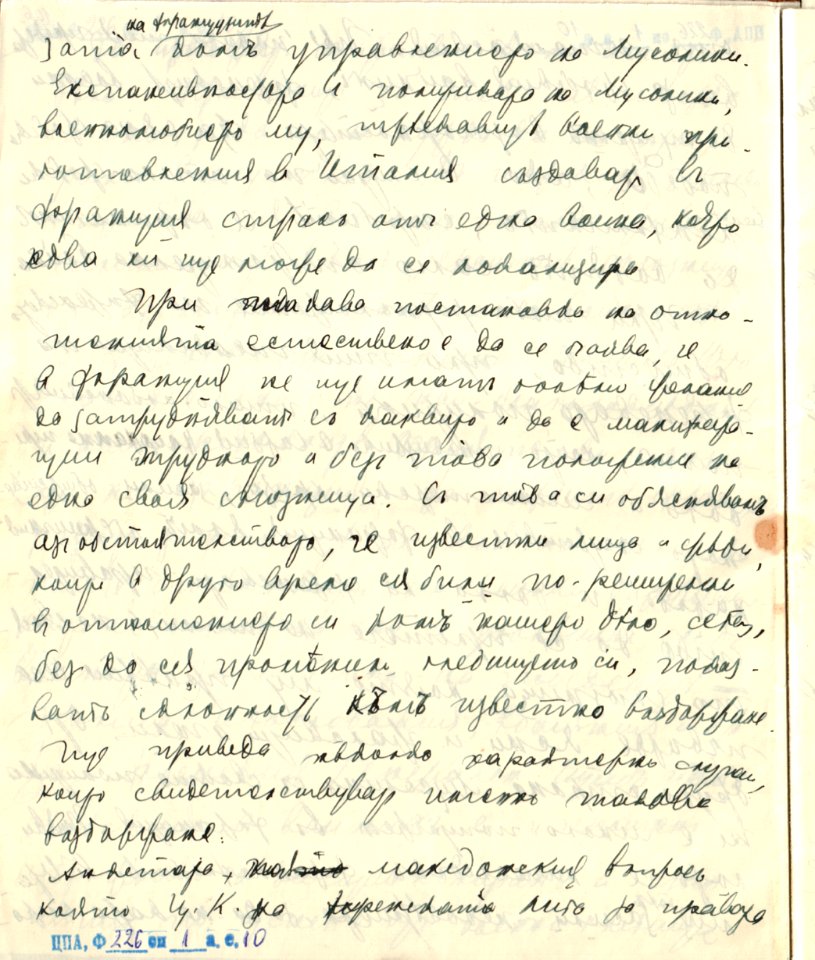 на французитѣ
зата къмъ управлението на Мусолини.
Експанзивностьта и политиката на Мусолини,
военнолюбието му, трескавитѣ военни при-
готовления в Италия създават въ
Франция страхъ отъ една война, която
едва ли ще може да се локализира
При такава постановка на отно-
шенията естествено е да се очаква, че
в Франция не ще иматъ особено желание
да затрудняватъ съ каквито и да е манифеста-
ции трудното и безъ това положение на
една своя съюзница. Съ това си обяснявамъ
аз обстоятелството, че известни лица и срѣди,
които в друго време сѫ били по-решителни
въ отношението си къмъ нашето дѣло, сега,
без да сѫ промѣнили становището си, показ-
ватъ склонность къмъ известно въздържане.
Ще приведа нѣколко характерни случаи,
които свидетелствуват именно такова
въздържане.
Анкетата, македонския въпросъ
която Ц. К. на Лига за правата
ЦПА, Ф 226 оп 1 а. е. 10